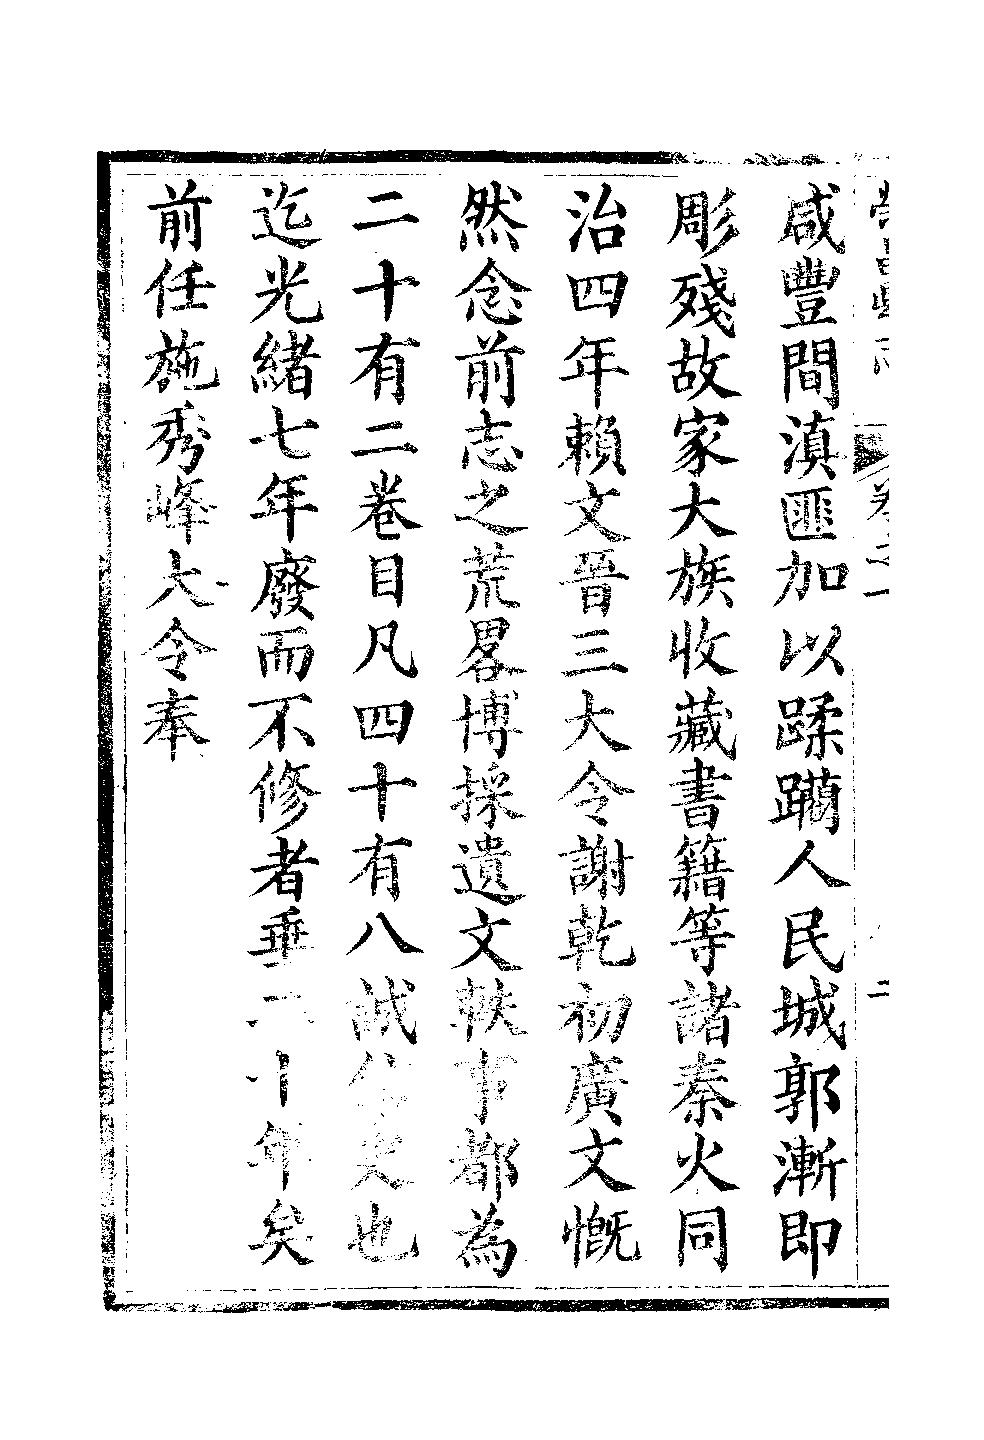 咸豐間滇匪加以蹂躪人民城郭漸即
彫殘故家大族收藏書籍等諸秦火同
治四年賴文晉三大令謝乾初廣文慨
然念前志之荒畧博採遺文軼事都為
二十有二卷目凡四十有八誠史也
迄光緒七年廢而不修者垂十年矣
前任施秀峰大令奉